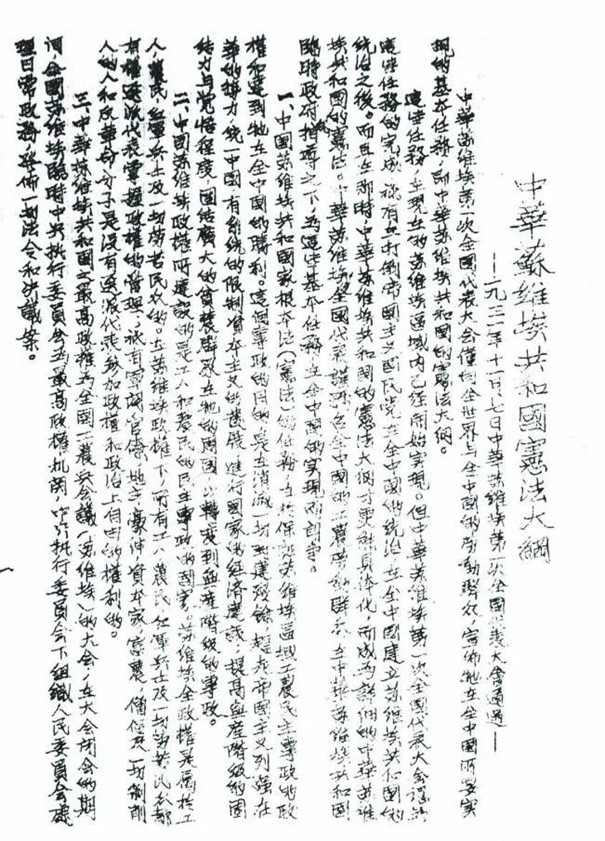 中華蘇維埃共和國憲法大綱
—一九三一年十一月七日中華蘇維埃第一次全國代表大會通過—
中華蘇維埃第一次全國代表大會謹向全世界与全中國的勞動群众,宣佈牠在全中國所要实
現的基本任務,即中華苏維埃共和國的憲法大綱。
這些任務,在現在的苏維埃區域內已經開始实現。但中華苏維埃第一次全國代表大會認為
這些任務的完成,祗有在打倒帝國主义國民党在全中國的統治,在全中國建立苏維埃共和國的
統治之後。而且在那時,中華苏維埃共和國的憲法大綱才更能具体化,而成為詳細的中華苏維
埃共和國的憲法。中華苏維埃全國代表大會謹号召全中國的工農勞動群众,在中華苏維埃共和國
臨時政府指導之下,為這些基本任務在全中國的实現而鬥爭。
一、中國苏維埃共和國家根本法(憲法)的任務,在於保証苏維埃區域工農民主專政的政
權和達到牠在全中國的勝利。這個專政的目的,是在消滅一切封建残餘,趕走帝國主义列强在
華的勢力,統一中國,有系統的限制資本主义的發展,進行國家的經濟建設,提高無産階級的團
結力与覚悟程度,團結廣大的貧農群众在牠的周圍,以轉变到無産階級的專政。
二、中國苏維埃政權所建設的是工人和農民的民主專政的國家。苏維埃全政權是屬於工
人,農民,紅軍兵士及一切勞苦民众的。在苏維埃政權下,所有工人農民紅軍兵士及一切勞苦民众都
有權選派代表掌握政權的管理,祗有軍閥,官僚,地主,豪紳,資本家,富農,僧侶及一切剝削
人的人和反革命分子是沒有選派代表參加政權和政治上自由的權利的。
三、中華苏維埃共和國之最高政權為全國工農兵會議(苏維埃)的大会,在大会閉会的期
间,全國苏維埃臨時中央執行委員会為最高政權机関,中央执行委員会下組織人民委員会處
理日常政務,發佈一切法令和決議案。